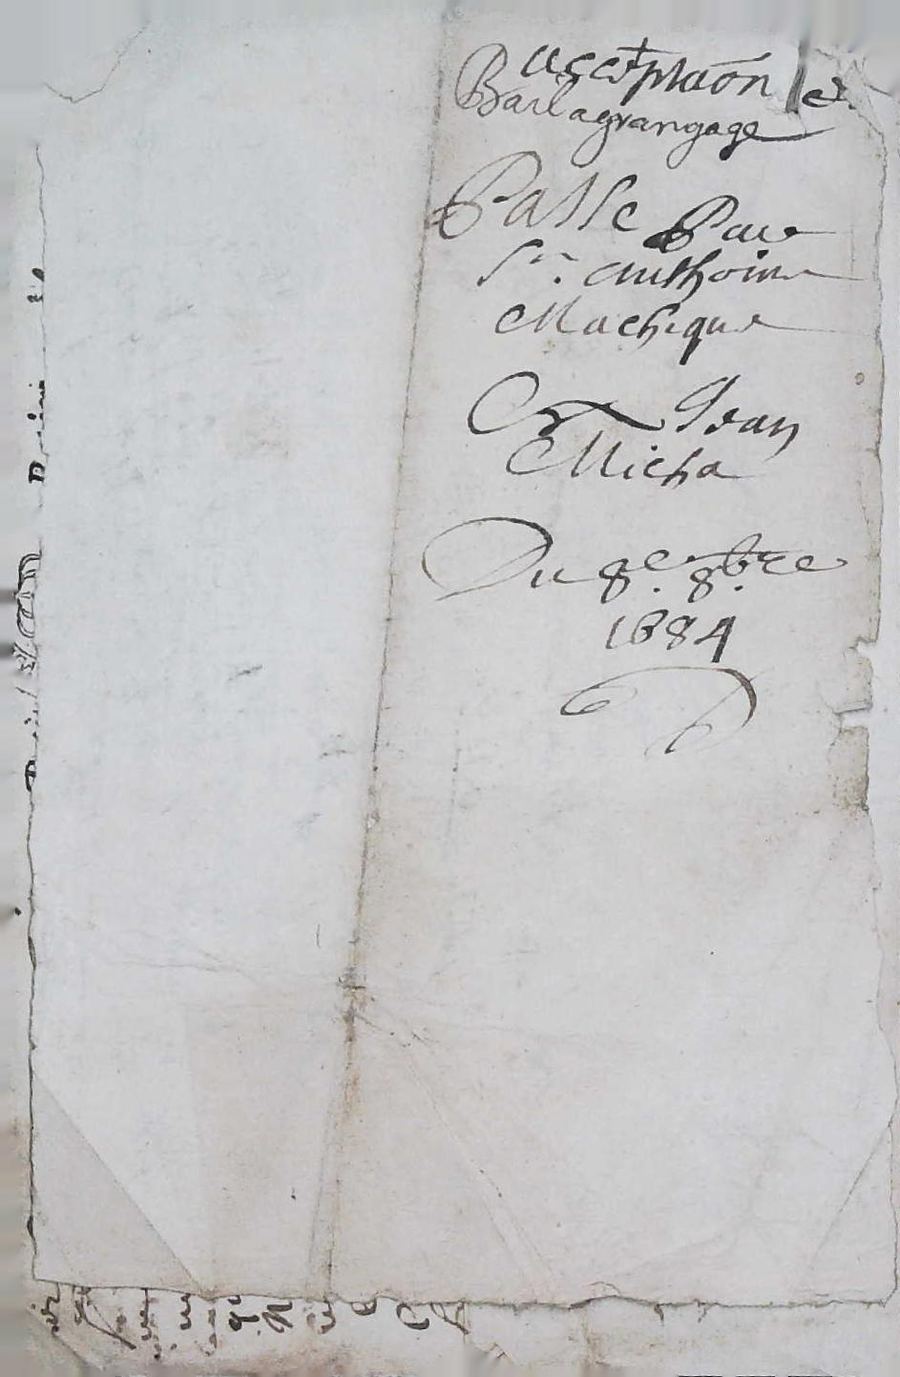 acceptaõn de
Barlagrangage
Passe Par
Sr. Anthoine
Macheque
Et Jean
Micha
Du 9e. 8bre
1684